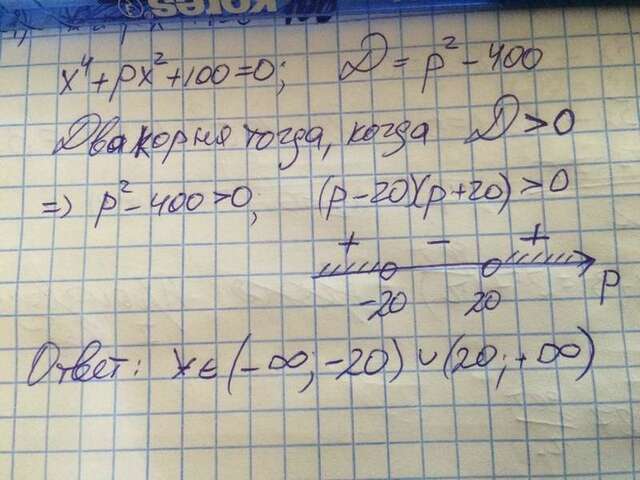 kores
x⁴+px²+100=0; D=p²-400
Два корня тогда, когда D>0
=> p²-400>0; (p-20)(p+20)>0
+ - +
-20 20 p
Ответ: x∈(-∞;-20)∪(20;+∞)